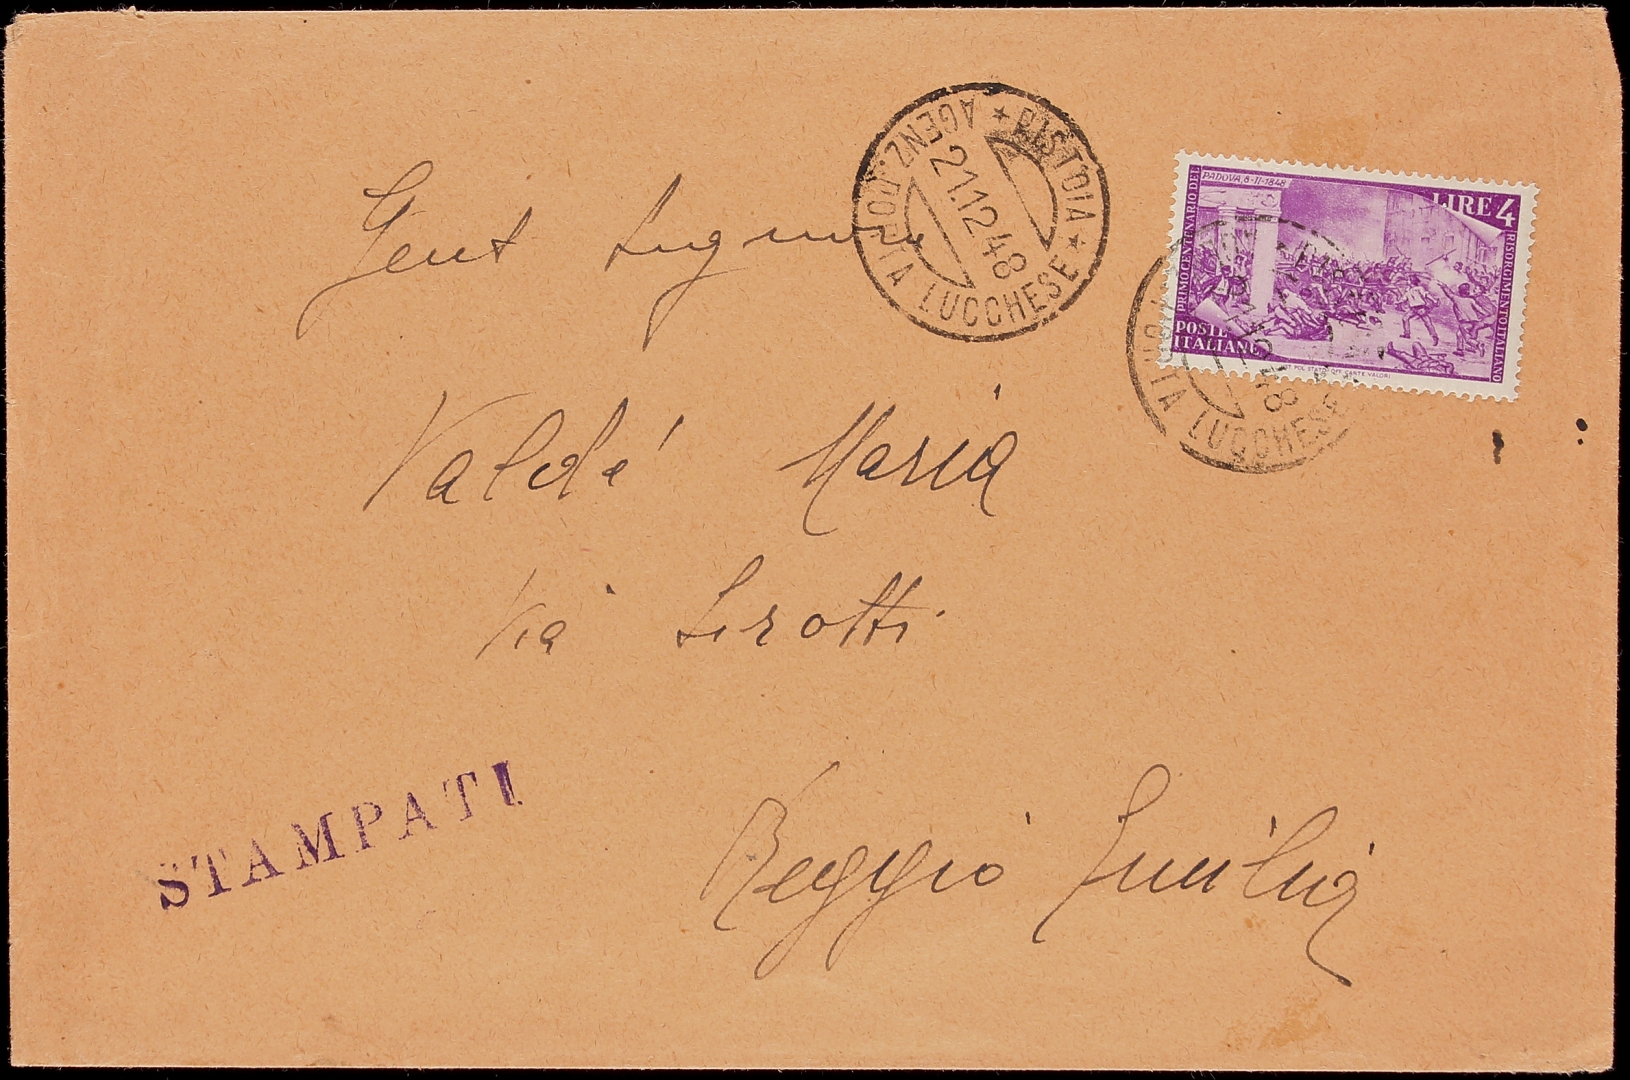 PISTOIA * AGENZ. N°1 PORTA LUCCHESE *
21.12.48
PADOVA, 8-II-1848
LIRE 4
PRIMO CENTENARIO DEL
RISORGIMENTO ITALIANO
POSTE
ITALIANE
IST. POL. STATO OFF. CARTE VALORI
LUCCHESE
Gent Signora
Valdé Maria
Via Sirotti
Reggio Emilia
STAMPATI